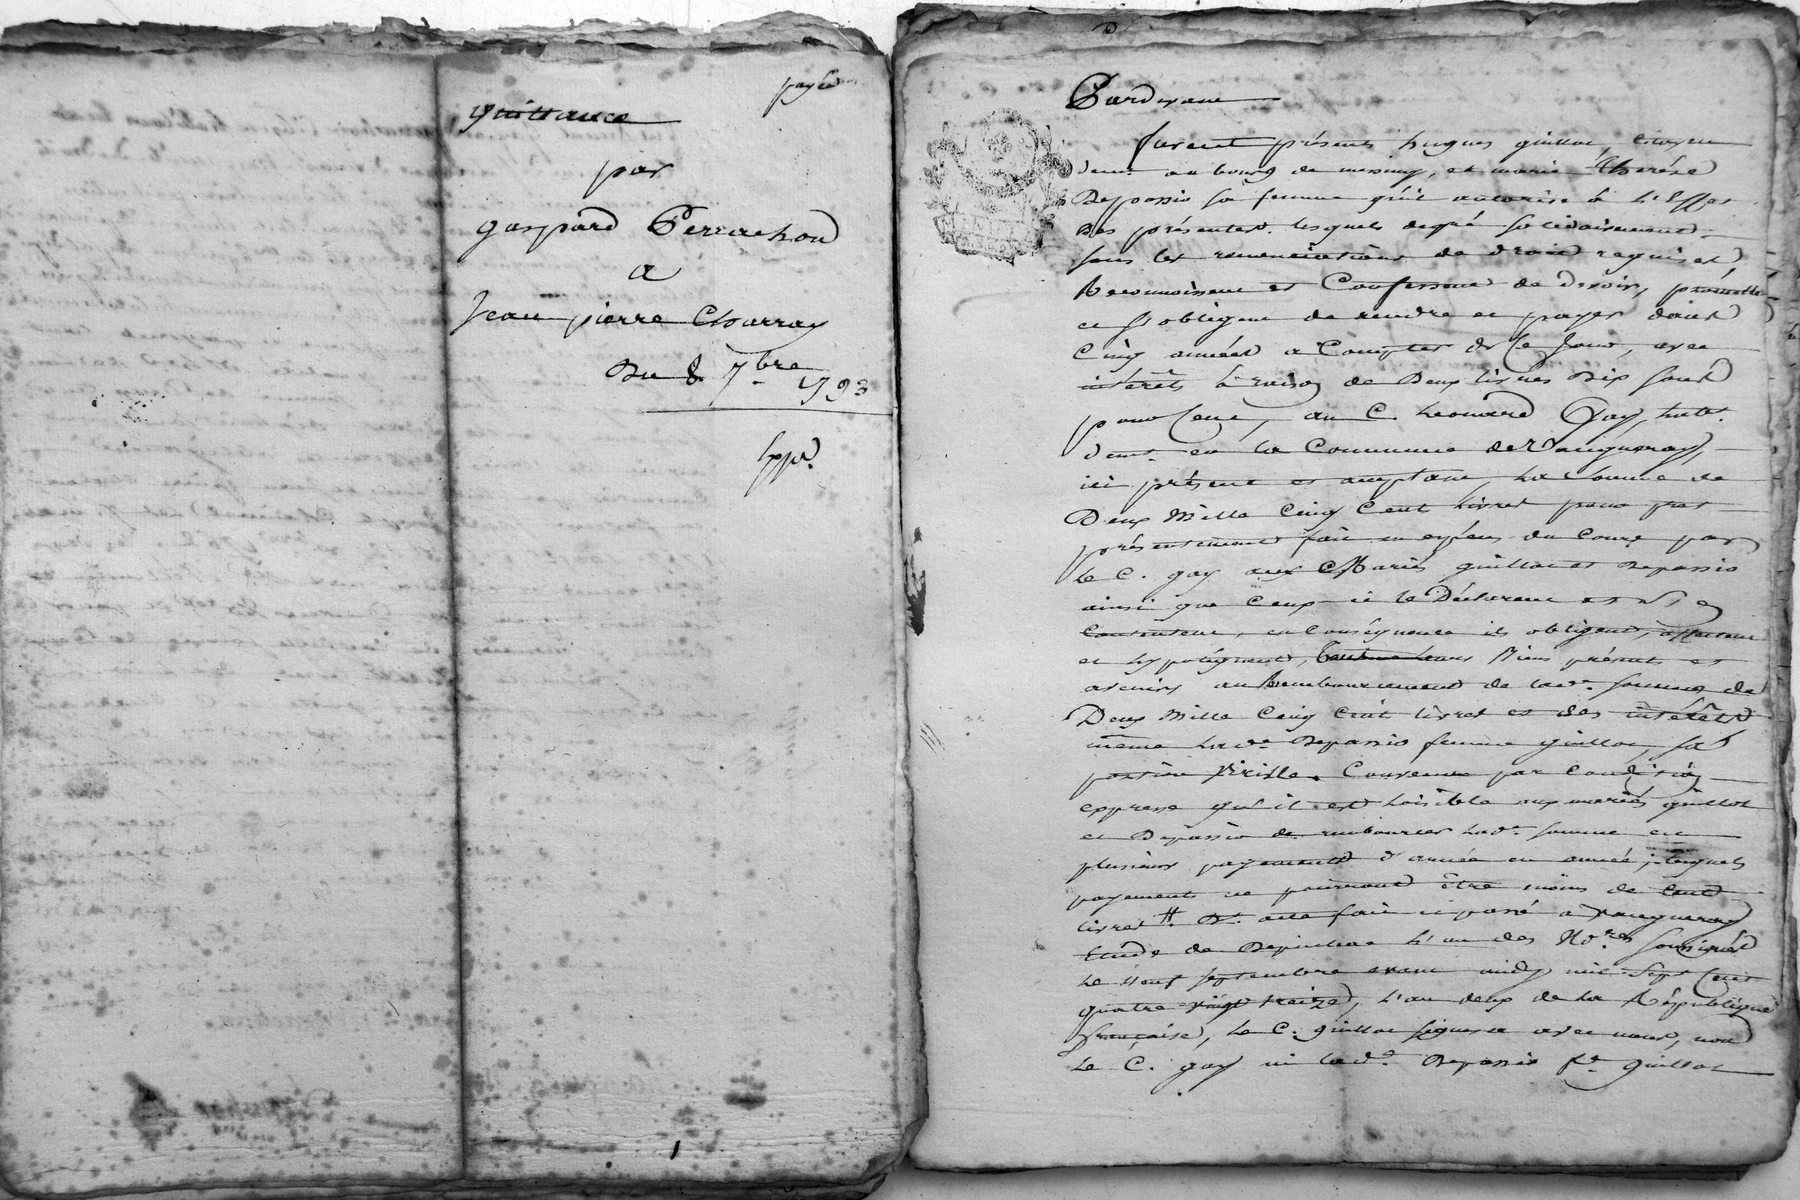 quittance
par
gaspard Perrachon
a
Jean pierre Charray
Du 8 7bre
1793
Pardevant
furent présents hugues guillot, citoyen
demt au bourg de messimy, et marie thérése
Depassio sa femme qu'il autorise à l'Effet
des présentes. lesquels degré solidairement
sous les renonciations de droit requises
Reconnoissent et Confessent de devoir, promettent
et s'obligent de rendre et payer dans
Cinq années a Compter de Ce Jour, avec
intérêts à raison de Deux livres Dix sous
pour Cent, au C. Leonard Gay, habt.
demt. en la Commune de Vaugneray,
ici présent et acceptant, La Somme de
Deux Mille Cinq Cent Livres pour prêt
présentement fait en espéces du Cours par
Le C. gay aux Mariés guillot et Depassio
ainsi que Ceux-ci le Déclarent et s'en
Contentent, en Conséquence ils obligent, affectent
et hypotéquent, Biens présents et
avenirs au Remboursement de lade. somme de
Deux Mille Cinq Cent livres et des intérêts
même lade. Depassio femme guillot, sa
portion virille. Convenu par Condition
expresse qu'il est loisible aux mariés guillot
et Depassio de rembourser lade. somme en
plusieurs payements d'année en année, lesquels
payements ne pourront être moins de Cent
livres Dt. acte fait et passé a vaugneray
Etude de l'un des Nores soussignés
Le neuf septembre avant midy mil Sept Cent
quatre vingt treize, L'an deux de la République
française, Le C. guillot signera avec nous, non
Le C. gay ni lade. Depassio fe. guillot